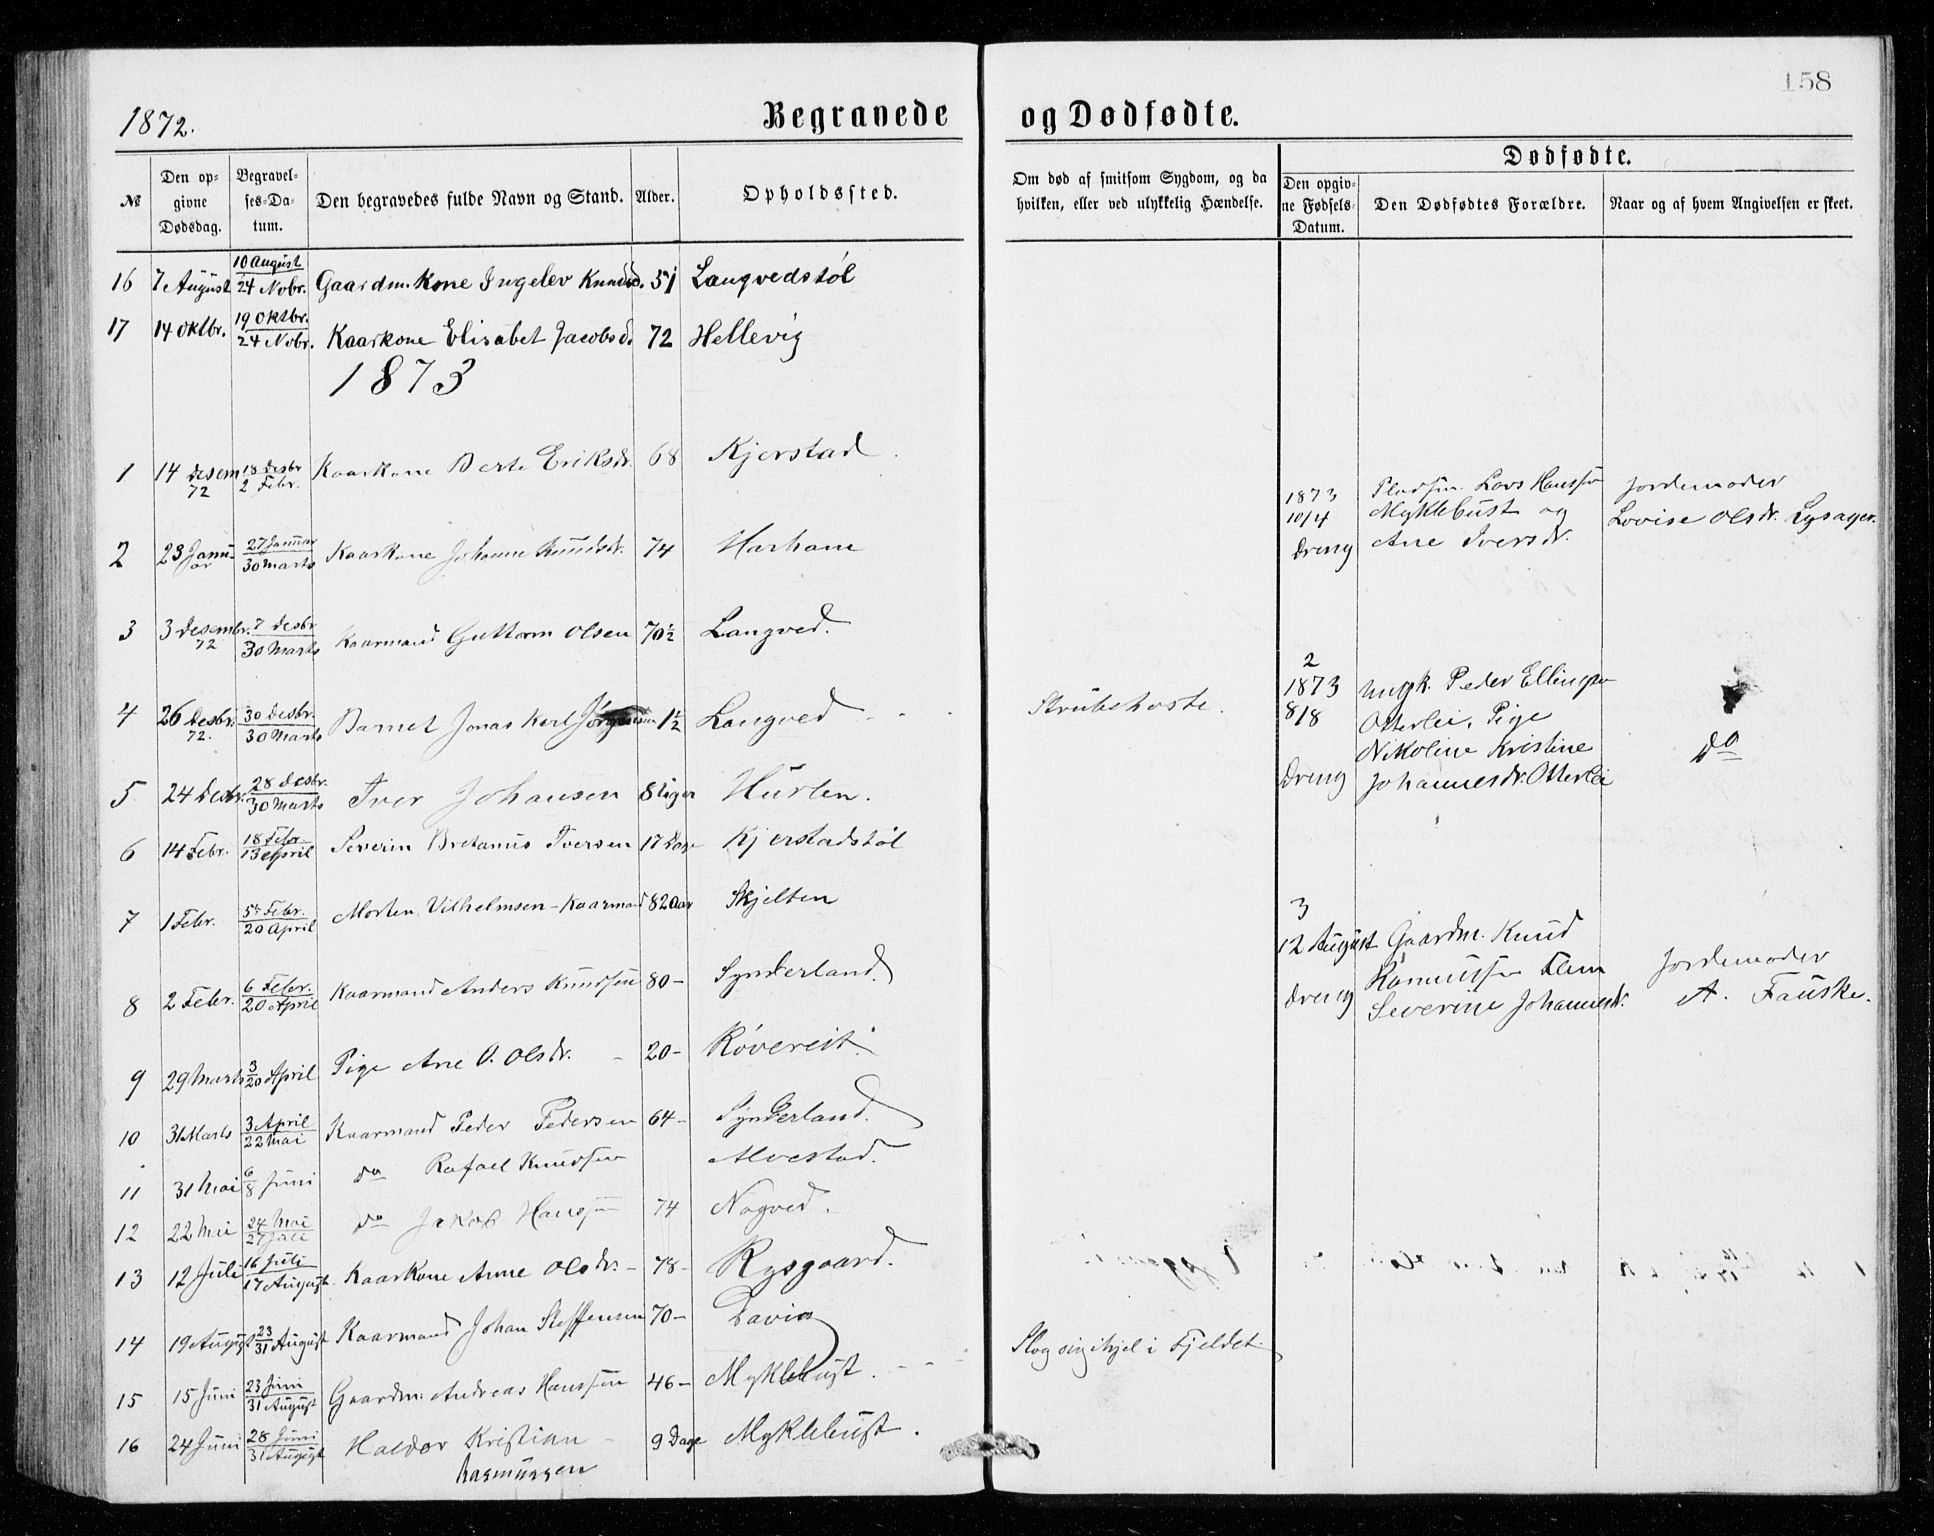 158
1872.
Begravede og Dødfødte.
№
Den opgivne Dødsdag.
Begravelses-Datum.
Den begravedes fulde Navn og Stand.
Alder.
Opholdssted.
Om død af smitsom Sygdom, og da hvilken, eller ved ulykkelig Hændelse.
Dødfødte.
Den opgivne Fødsels-Datum.
Den Dødfødtes Forældre.
Naar og af hvem Angivelsen er skeet.
16 7 August 10 August 24 Nobr. Gaardm. Kone Ingelev Knudsd. 51 Langvedstøl
17 14 Oktbr. 19 Oktbr. 24 Nobr. Kaarkone Elisabet Jacobsd. 72 Hellevig
1873
1 14 Desem 72 18 Desbr 2 Febr. Kaarkone Berte Eriksdr. 68 Kjerstad
1873 10/4 Dreng Pladsm. Lars Hanssen Myklebust og Ane Iversdr. Jordemoder Lovise Olsdr. Lysager.
2 23 Januar 27 Januar 30 Marts Kaarkone Johanne Knudsdr. 74 Harham
3 3 Desembr. 72 7 Desbr 30 Marts Kaarmand Guttorm Olsen 70½ Langved.
4 26 Desbr. 72. 30 Desbr. 30 Marts Barnet Jonas Karl Jørgensen 1½ Langved - - Strubehoste.
2 1873 8/8 Dreng Ungk. Peder Ellingsen Otterlei, Pige Nikoline Kristine Johannesdr. Otterlei do
5 24 Desbr. 28 Desbr. 30 Marts Iver Johansen 8 Uger Hurlen.
6 14 Febr. 18 Febr. 13 April Severin Bretanus Iversen 17 Dage Kjerstadstøl
7 1 Febr. 5te Febr. 20 April Morten Vilhelmsen - Kaarmand 82 Aar Skjelten
3 12 August Dreng Gaardm. Knud Rasmussen Flem Severine Johannesdr. Jordemoder A. Fauske.
8 2 Febr. 6 Febr. 20 April Kaarmand Anders Knudsen 80 - Synderland.
9 29 Marts 3/20 April Pige Ane O. Olsdr. - 20 - Røvereit.
10 31 Marts 3 April 22 Mai Kaarmand Peder Pedersen 64 - Synderland.
11 31 Mai 6/8 Juni do Rafael Knudsen Alvestad.
12 22 Mai 24 Mai 27 Juli do Jakob Hanssen 74 Nogved.
13 12 Juli 16 Juli 17 August Kaarkone Anne Olsdr. - 78 - Rysgaard.
14 19 August 23/31 August Kaarmand Johan Steffensen 70 - Davig
15 15 Juni 23 Juni 31 August Gaardm. Andreas Hanssen 46 - Myklebust. - - Slog sig ihjel i Fjeldet.
16 24 Juni 28 Juni 31 August Haldor Kristian Rasmussen 9 Dage Myklebust.